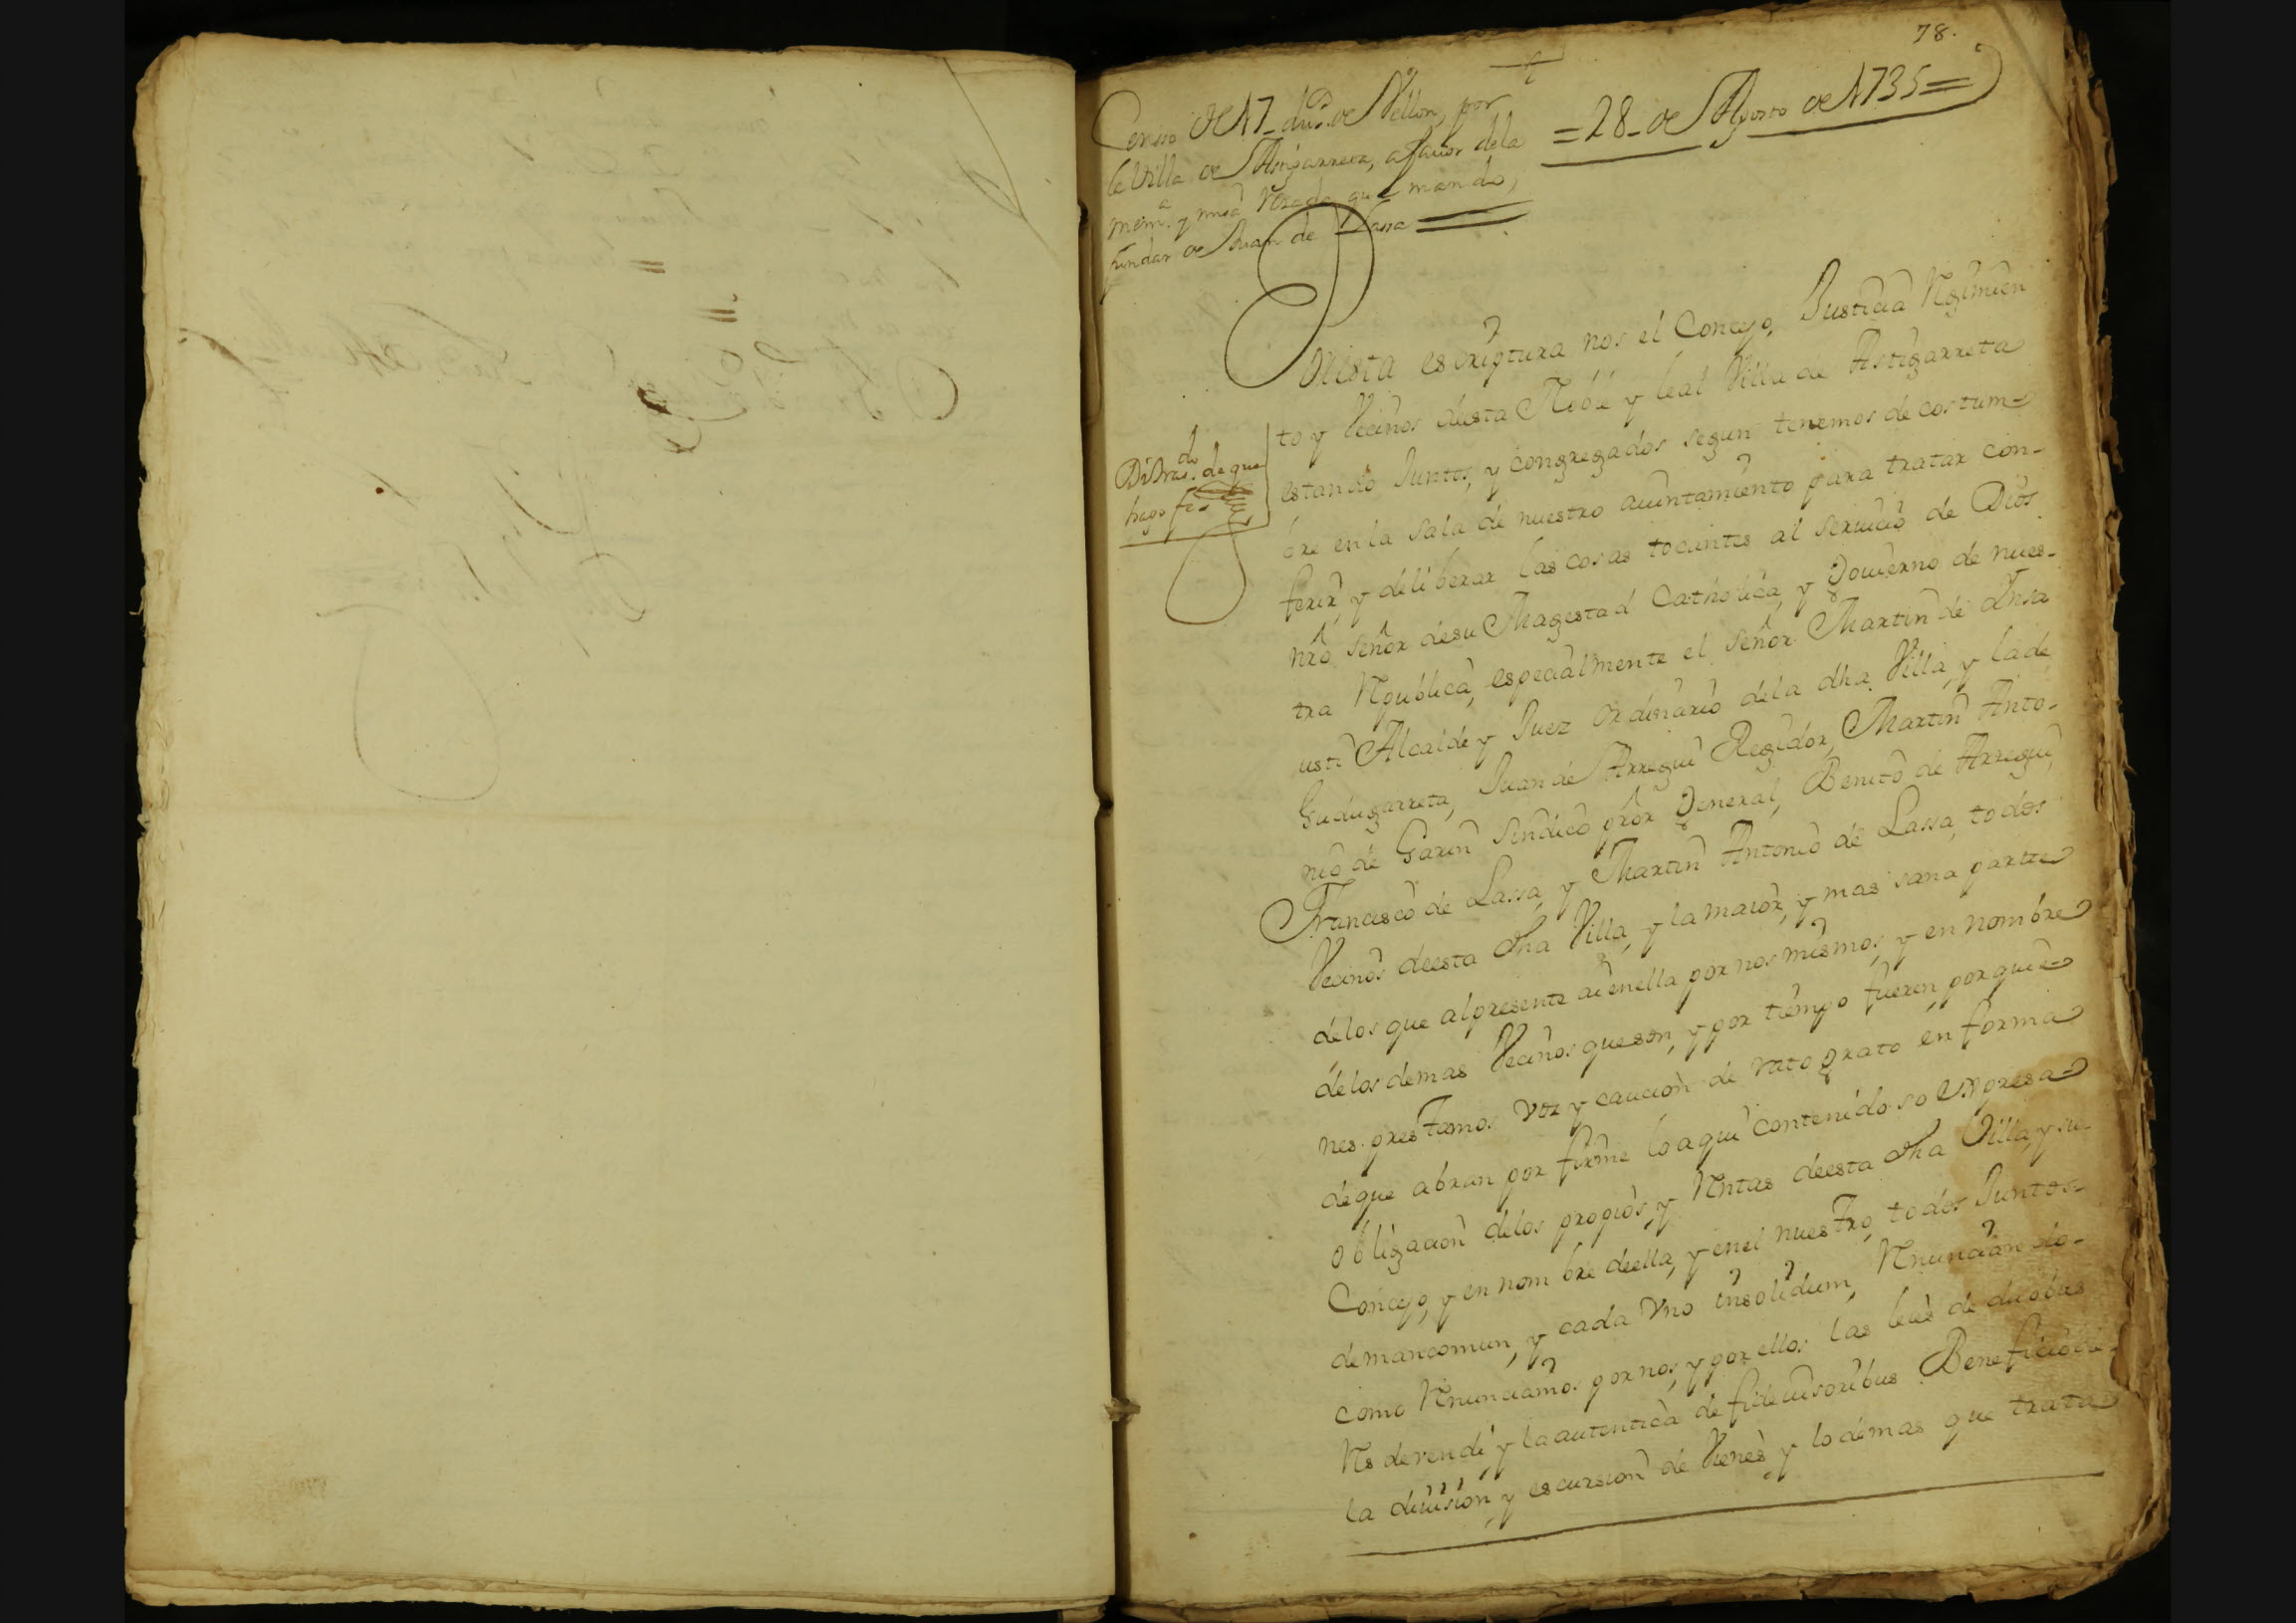 78.
= 28_ de Agosto de 1735 =
Censo de 17_ du.s de Vellon, por
la Villa de Astigarreta, a favor dela
mem.a y missa Rezada que mando,
fundar de Juan de Lassa
En esta escriptura nos el Concejo, Justicia Regimien
to y Vecinos desta Noble y leal Villa de Astigarreta
estando Juntos, y congregados segun tenemos de costum-
bre en la sala de nuestro aiuntamiento para tratar con-
ferir, y deliberar las cosas tocantes al seruicio de Dios
nro señor de su Magestad Catholica, y Gouierno de nues-
tra Republica, especialmente el señor Martin de Insa
usti Alcalde y Juez ordinario dela dha Villa, y la de
Gudugarreta, Juan de Arregui Regidor, Martin Anto-
nio de Garin sindico pror General, Benito de Arregui,
Francisco de Lassa, y Martin Antonio de Lassa, todos
Vecinos de esta dha Villa, y la maior, y mas sana parte
delos que al presente ai en ella por nos mismos, y en nombre
delos demas Vecinos que son, y por tiempo fueren, por quie-
nes prestamos voz y caucion de rato grato en forma
de que abran por firme lo aqui contenido so expresa
obligacion delos propios, y Rentas de esta dha Villa, y su
Concejo, y en nombre de ella, y en el nuestro, todos Juntos
de mancomun, y cada vno insolidum, Renunciando
como Renunciamos por nos, y por ellos las leies de duobus
Res de vendi, y la autentica de fideiusoribus Beneficio de
la diuision, y escursion de Vienes y lo demas que trata
Di Tras.do de que
hago fe